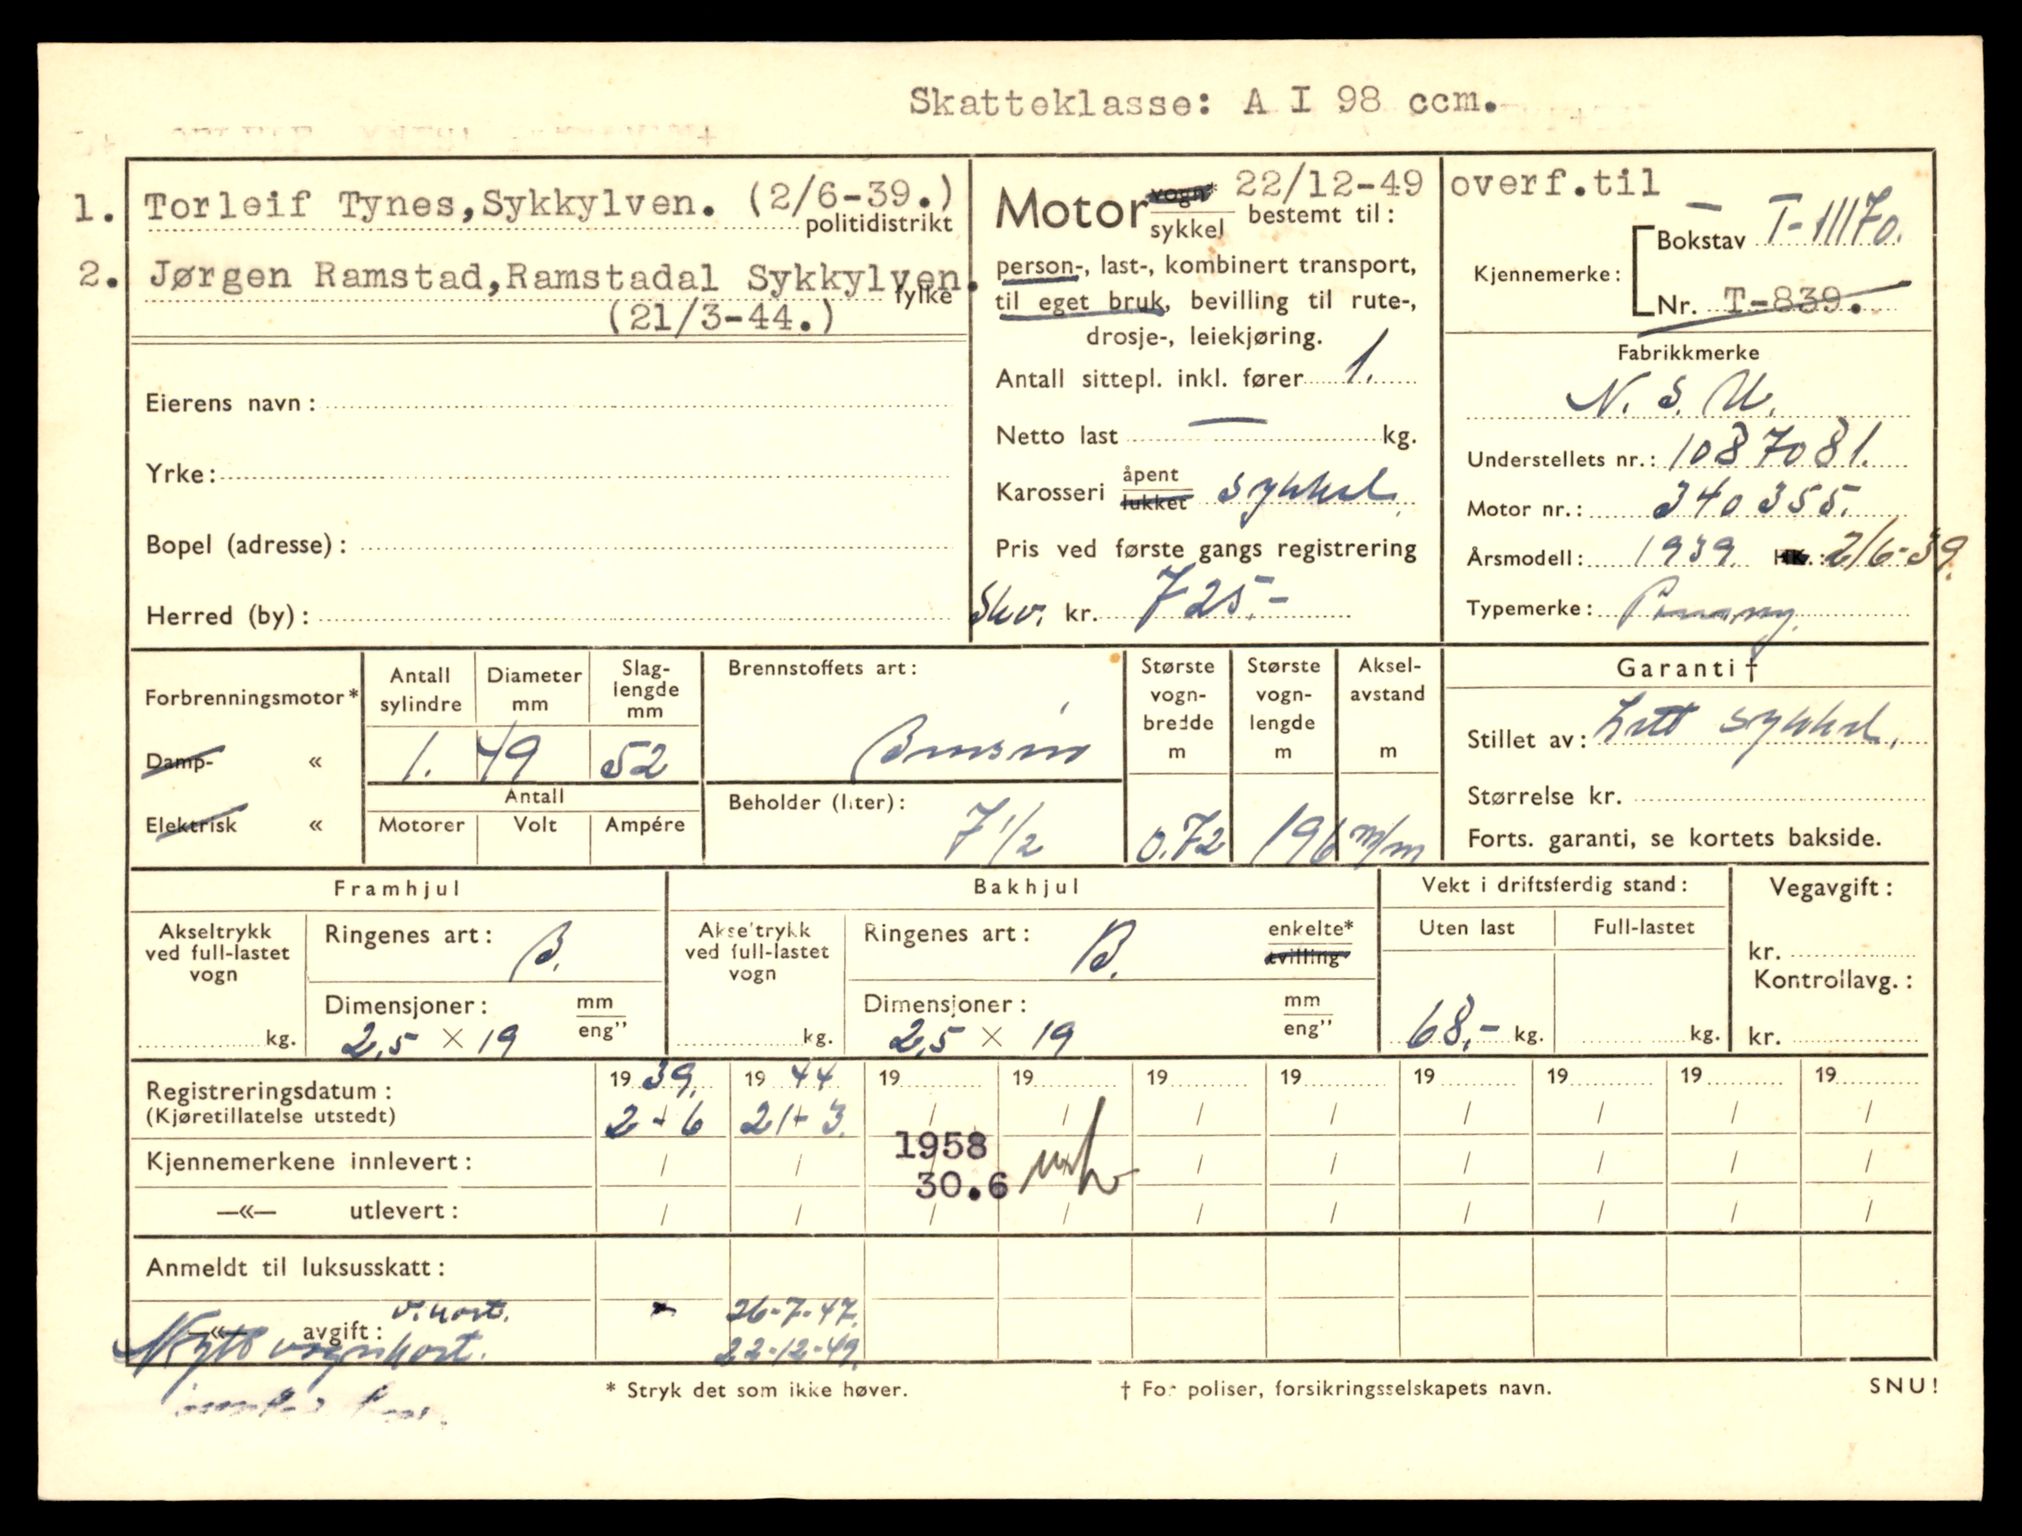 Skatteklasse: A I 98 ccm.
1. Torleif Tynes, Sykkylven. (2/6-39.)
politidistrikt
2. Jørgen Ramstad, Ramstadal Sykkylven.
fylke
(21/3-44.)
Eierens navn:
Yrke:
Bopel (adresse):
Herred (by):
Motor vogn* / sykkel 22/12-49 overf.til
bestemt til:
person-, last-, kombinert transport,
til eget bruk, bevilling til rute-,
drosje-, leiekjøring.
Antall sittepl. inkl. fører 1.
Netto last — kg.
Karosseri åpent / lukket sykkel.
Pris ved første gangs registrering
Skv. kr. 725.-
Kjennemerke:
Bokstav — T-11170.
Nr. T-839.
Fabrikkmerke
N. S. U.
Understellets nr.: 1087081.
Motor nr.: 340355.
Årsmodell: 1939. HK.: 2/6-39.
Typemerke:
Forbrenningsmotor*
Damp- «
Elektrisk «
Antall sylindre
Diameter mm
Slag-lengde mm
1. 49 52
Antall
Motorer Volt Ampére
Brennstoffets art:
Bensin
Beholder (liter):
7 1/2
Største vogn-bredde m
0.72
Største vogn-lengde m
Aksel-avstand m
196 m/m
Garanti †
Stillet av: Lett sykkel.
Størrelse kr.
Forts. garanti, se kortets bakside.
Framhjul
Akseltrykk ved full-lastet vogn
kg.
Ringenes art: B.
Dimensjoner: mm / eng”
2,5 × 19
Bakhjul
Akseltrykk ved full-lastet vogn
kg.
Ringenes art: B. enkelte* / tvilling
Dimensjoner: mm / eng”
2,5 × 19
Vekt i driftsferdig stand:
Uten last Full-lastet
68,- kg. kg.
Vegavgift:
kr.
Kontrollavg.:
kr.
Registreringsdatum: 19 39. 19 44 19 19 19 19 19 19 19 19
(Kjøretillatelse utstedt) 2 + 6 21 + 3. / / / / / / / /
Kjennemerkene innlevert: / / 1958 / / / / / / /
30.6
—«— utlevert: / / / / / / / / / /
Anmeldt til luksusskatt:
v.kort. - 26-7-47.
—«— avgift:
Nytt vognkort. 22-12-49.
* Stryk det som ikke høver.
† For poliser, forsikringsselskapets navn.
SNU!